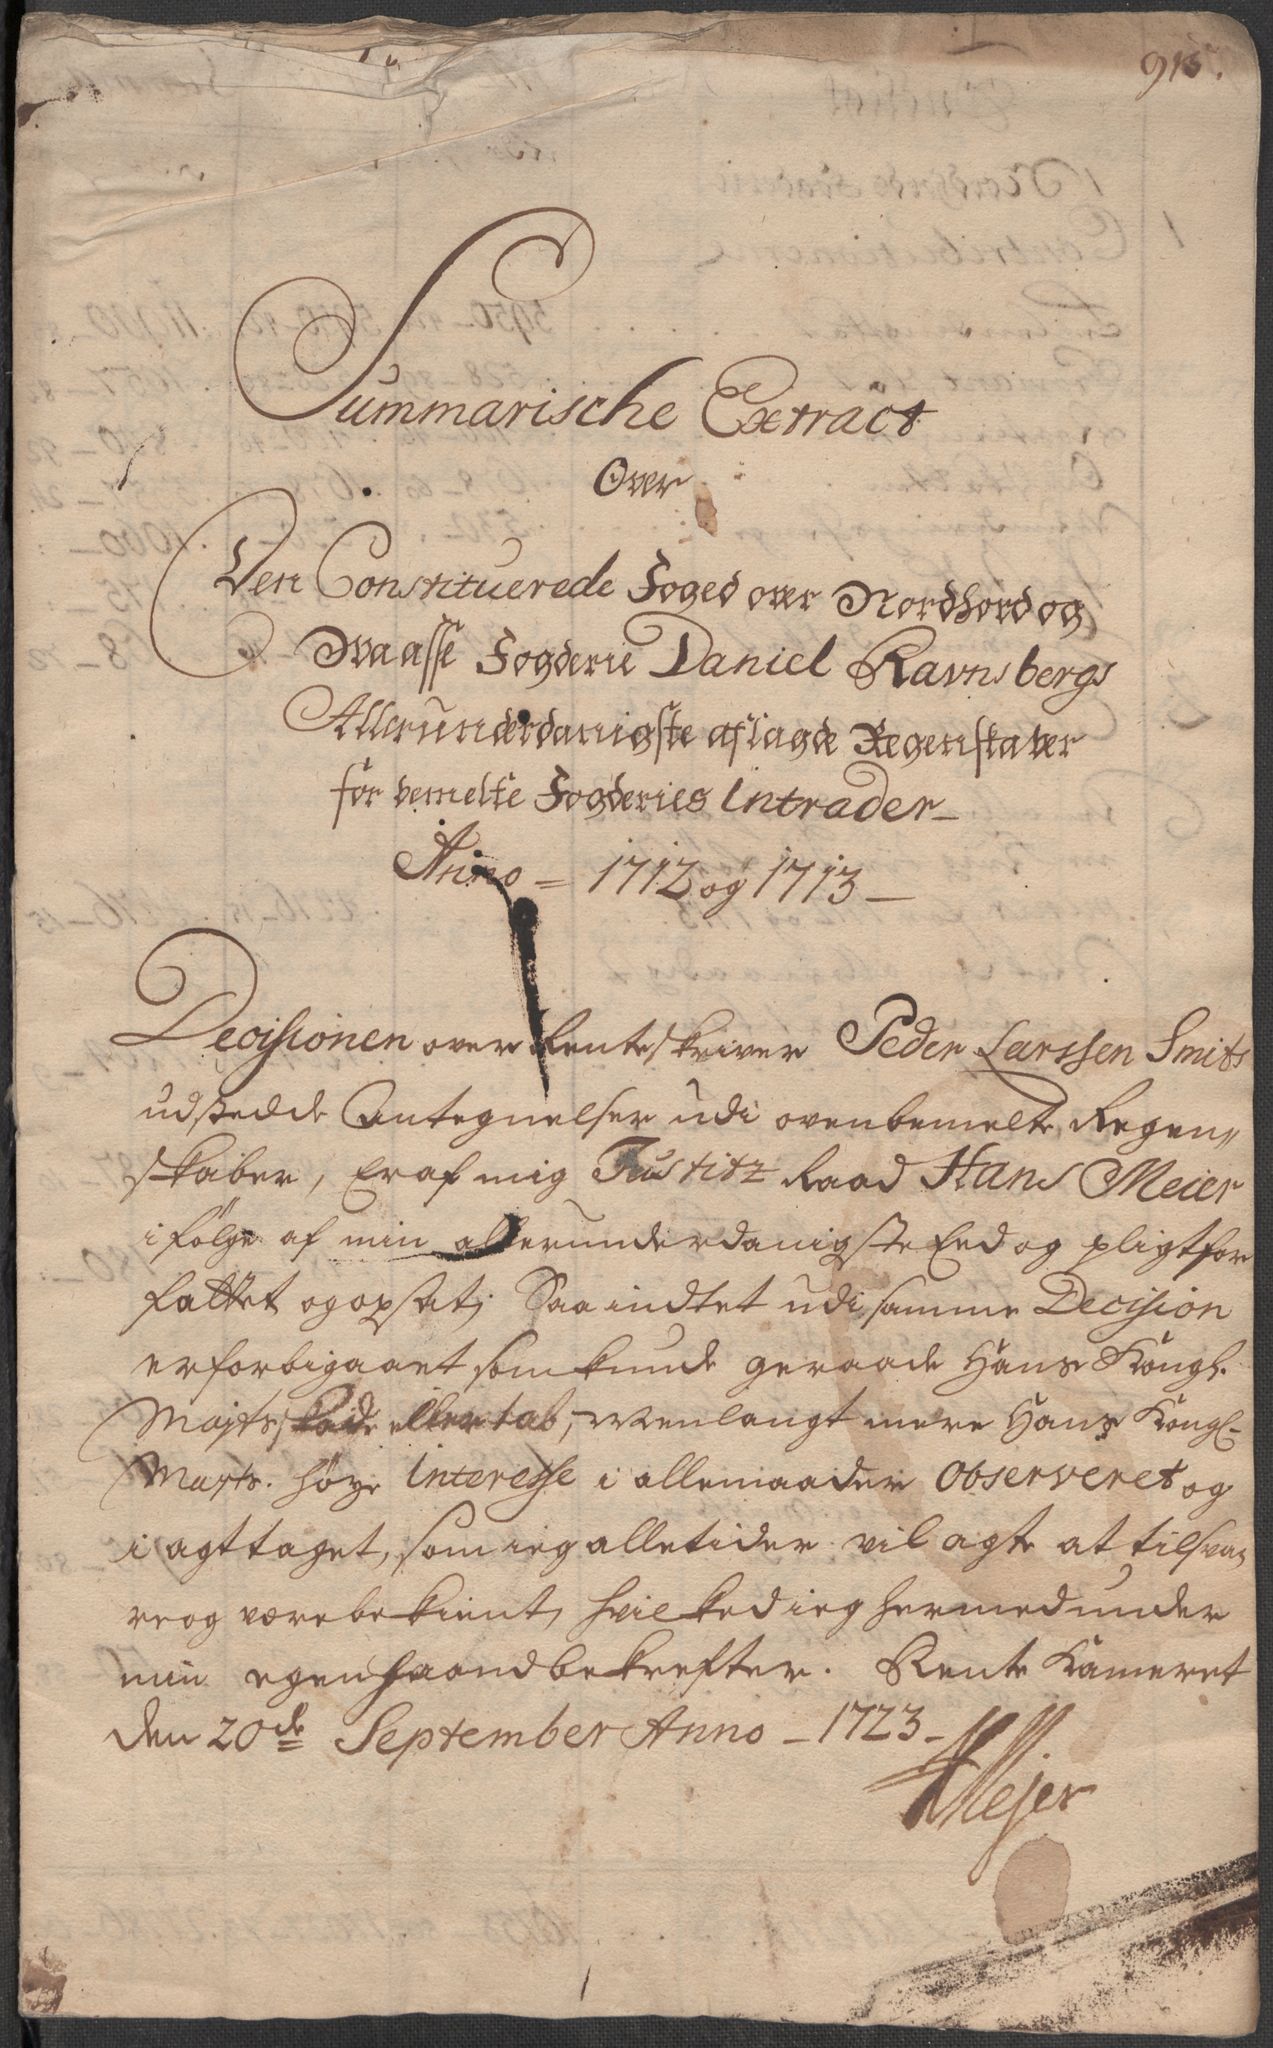 915.
Summarische Extract
Over
Den Constituerede Foged over Nordhord og
Waasse Fogderie Daniel Ravnsbergs
Allerunderdanigste aflagde Regenskaber
for bemelte Fogderies Intrader
Anno = 1712 og 1713
Decisionen over Renteskriver Peder Larssen Smits
udstedde Antegnelser udi ovenbemelte Regen„
skaber, er af mig Justitz Raad Hans Meier
i følge af min allerunderdanigste Eed og pligt for
fattet og opsat; Saa indtet udi samme Decision
er forbigaaet som kunde geraade Hans Kongl.
Majts. skade eller tab, Men langt mere Hans Kongl.
Majts. høye interesse i allemaader observeret og
i agttaget, som ieg alletider vil agte at tilsva„
re og være bekient, hvilked ieg hermed under
min egen haand bekrefter. Rente Kameret
den 20de September Anno - 1723 -
HMejer
1